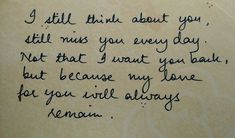 I still think about you,
still miss you every day.
Not that I want you back,
but because my love
for you will always
remain.